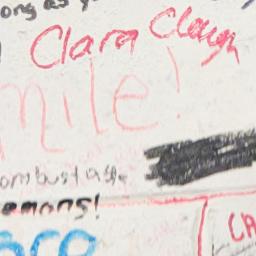 ong as y
Clara Clough
mile!
ombustable
emons!
CA